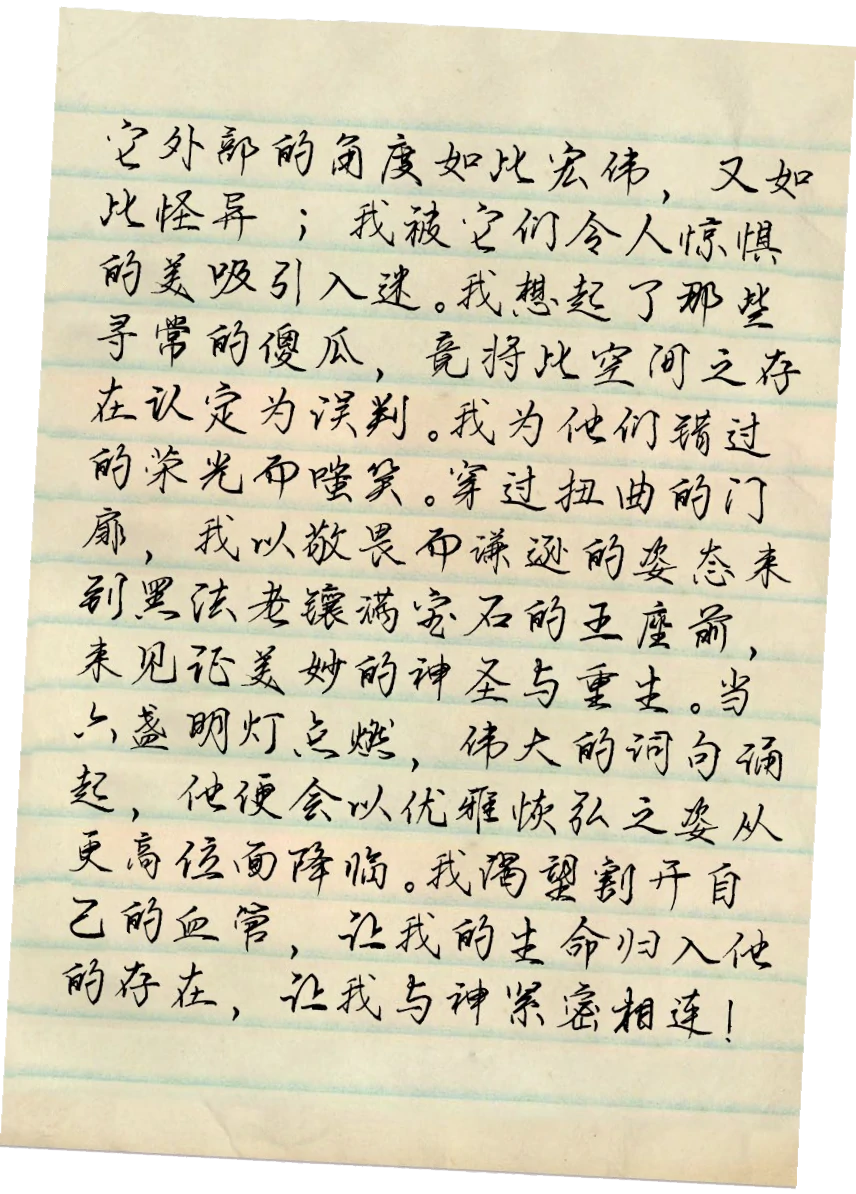 它外部的角度如此宏伟，又如
此怪异；我被它们令人惊惧
的美吸引入迷。我想起了那些
寻常的傻瓜，竟将此空间之存
在认定为误判。我为他们错过
的荣光而嗤笑。穿过扭曲的门
廊，我以敬畏而谦逊的姿态来
到黑法老镶满宝石的王座前，
来见证美妙的神圣与重生。当
六盏明灯点燃，伟大的词句诵
起，他便会以优雅恢弘之姿从
更高位面降临。我渴望割开自
己的血管，让我的生命归入他
的存在，让我与神紧密相连！